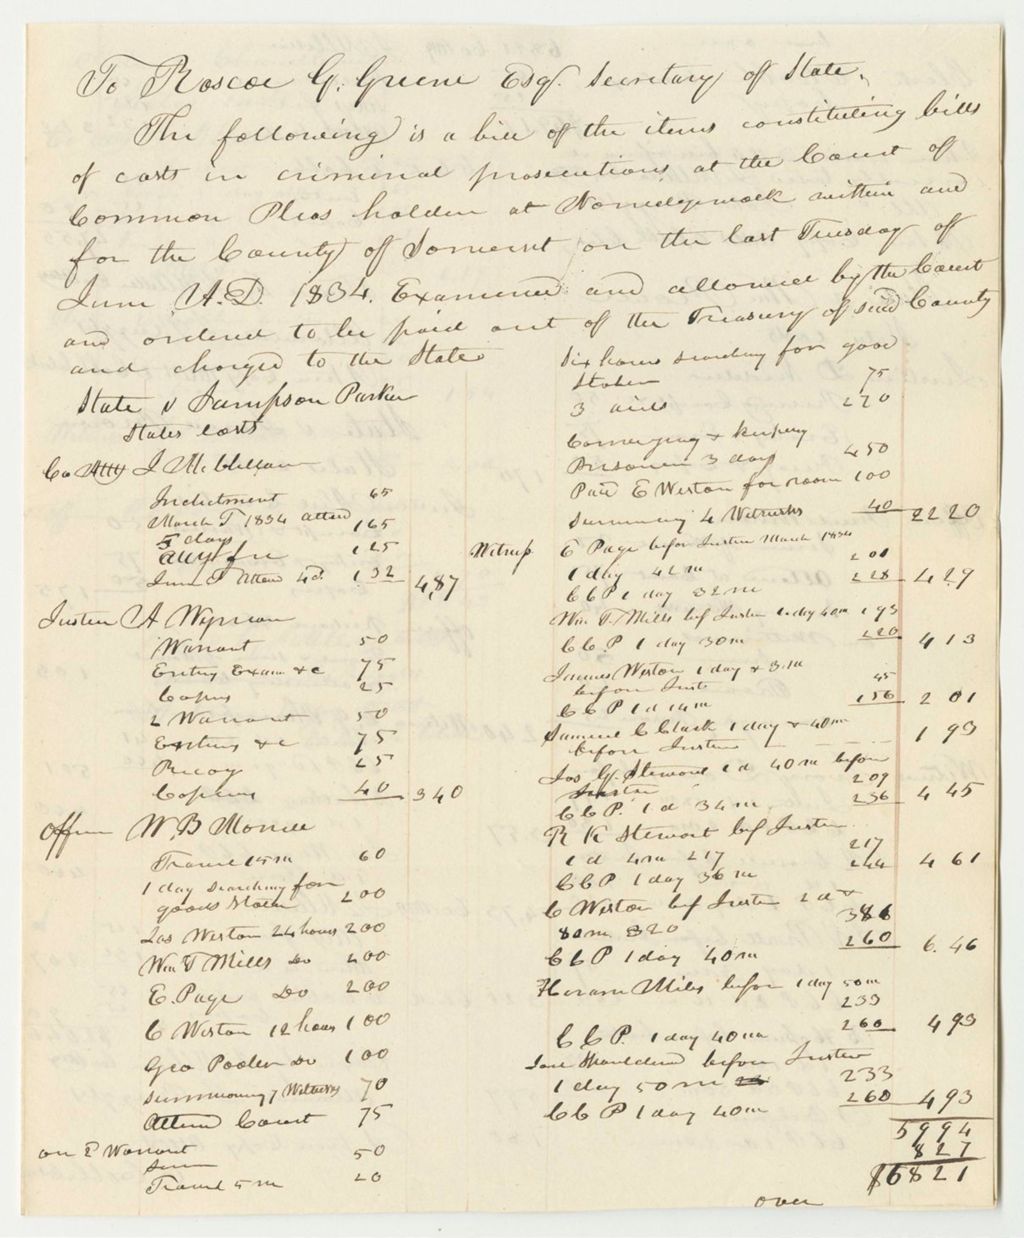 To Roscoe G. Greene Esq. Secretary of State.
The following is a bill of the items constituting bills
of costs in criminal prosecutions at the Court of
Common Pleas holden at Norridgewock within and
for the County of Somerset on the last Tuesday of
June A.D. 1834. Examined and allowed by the Court
and ordered to be paid out of the Treasury of said County
and charged to the State
State v Sampson Parker
States Costs
Co Atty J McClellan
Indictment 65
March T 1834 attend
5 days 165
Atty fee 125
June T Atten 4d. 132 4,87
Justice A Wyman
Warrant 50
Entry Exam &c 75
Copies 25
2 Warrant 50
Entring &c 75
Recog 25
Copies 40 340
Officer W. B Morrill
Travel 15 m 60
1 day searching for
goods stolen 200
Jas Weston 24 hours 200
Wm T Mills Do 200
E. Page Do 200
C Weston 12 hours 100
Geo Pooler Do 100
summoning 7 Witnesses 70
Attend Court 75
on 2 Warrant
50
Travel 5 m 20
Six hours searching for good
Stolen 75
3 aids 220
Conveying & keeping
Prisoner 3 days 450
Paid E Weston for room 100
Summong 4 Witnesses 40 2220
Witness E Page before Justice March 1834
1 day 42 m 201
C C P 1 day 32 m 228 429
Wm T. Mills bef Justice 1 day 40m 193
C C. P 1 day 30 m 220 413
James Weston 1 day & 3. m
before Just 45
C C P 1 d 14 m 156 201
Samuel C Clark 1 day & 40m
before Justice 193
Jas G. Steward 1 d 40 m before
Justice 209
C C P. 1 d 34 m. 236 445
R K Stewart bef Justice
1 d 4 m 217 217
C C P 1 day 36 m 244 461
C Weston bef Justice 2 d &
80 m 320 386
C C P 1 day 40 m 260 6.46
Hiram Mills before 1 day 50 m
233
C C P. 1 day 40 m 260 493
before Justice
1 day 50 m 233
C C P 1 day 40m 260 493
5994
827
$6821
over